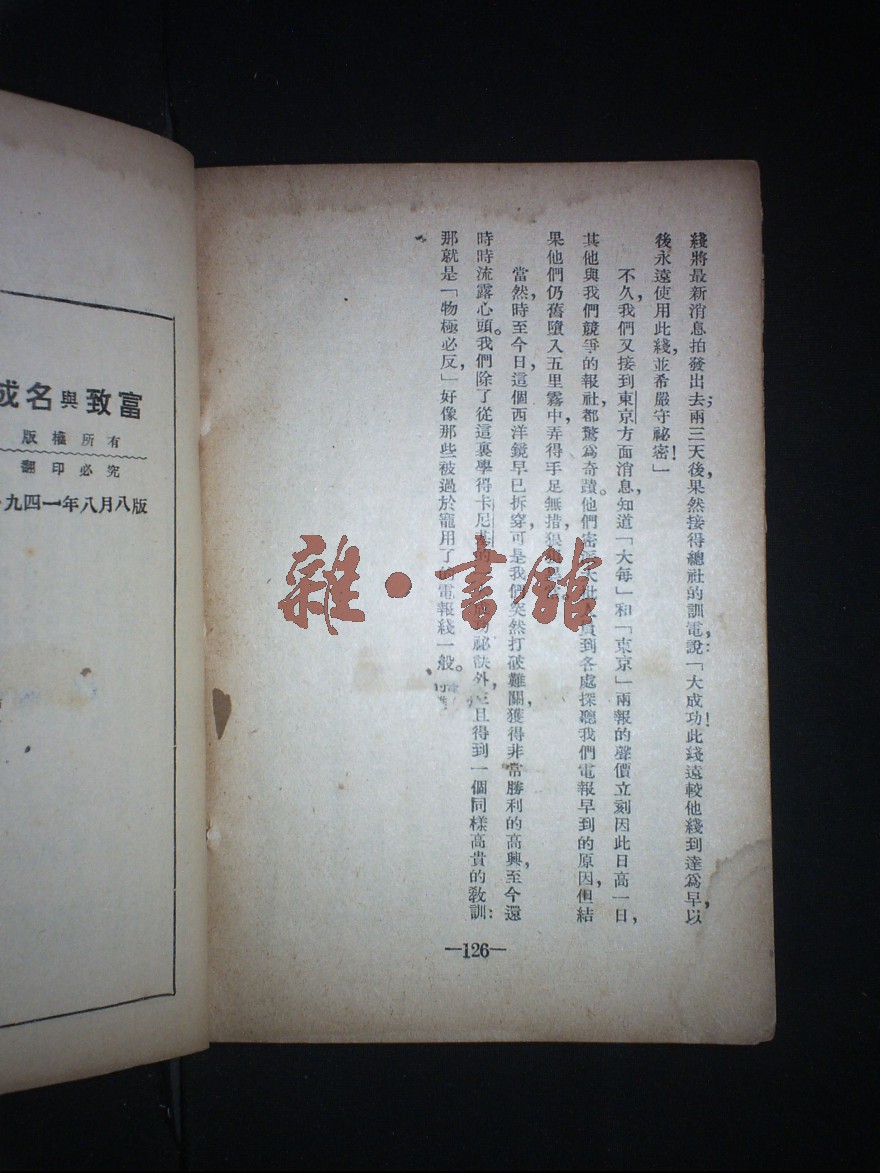 綫將最新消息拍發出去；兩三天後，果然接得總社的訓電，說：「大成功！此綫遠較他綫到達爲早，以
後永遠使用此綫，並希嚴守祕密！」
不久，我們又接到東京方面消息，知道「大每」和「東京」兩報的聲價立刻因此日高一日，
其他與我們競爭的報社，都驚爲奇蹟。他們密派大批 員到各處探聽我們電報早到的原因，但結
果他們仍舊墮入五里霧中，弄得手足無措，狼
當然，時至今日，這個西洋鏡早已拆穿，可是我們突然打破難關，獲得非常勝利的高興，至今還
時時流露心頭。我們除了從這裏學得卡尼 的 祕訣外，並且得到一個同樣高貴的敎訓：
那就是「物極必反」，好像那些被過於寵用了的電報綫一般。
—126—
雜·書館
富致與名成
版權所有
翻印必究
九四一年八月八版